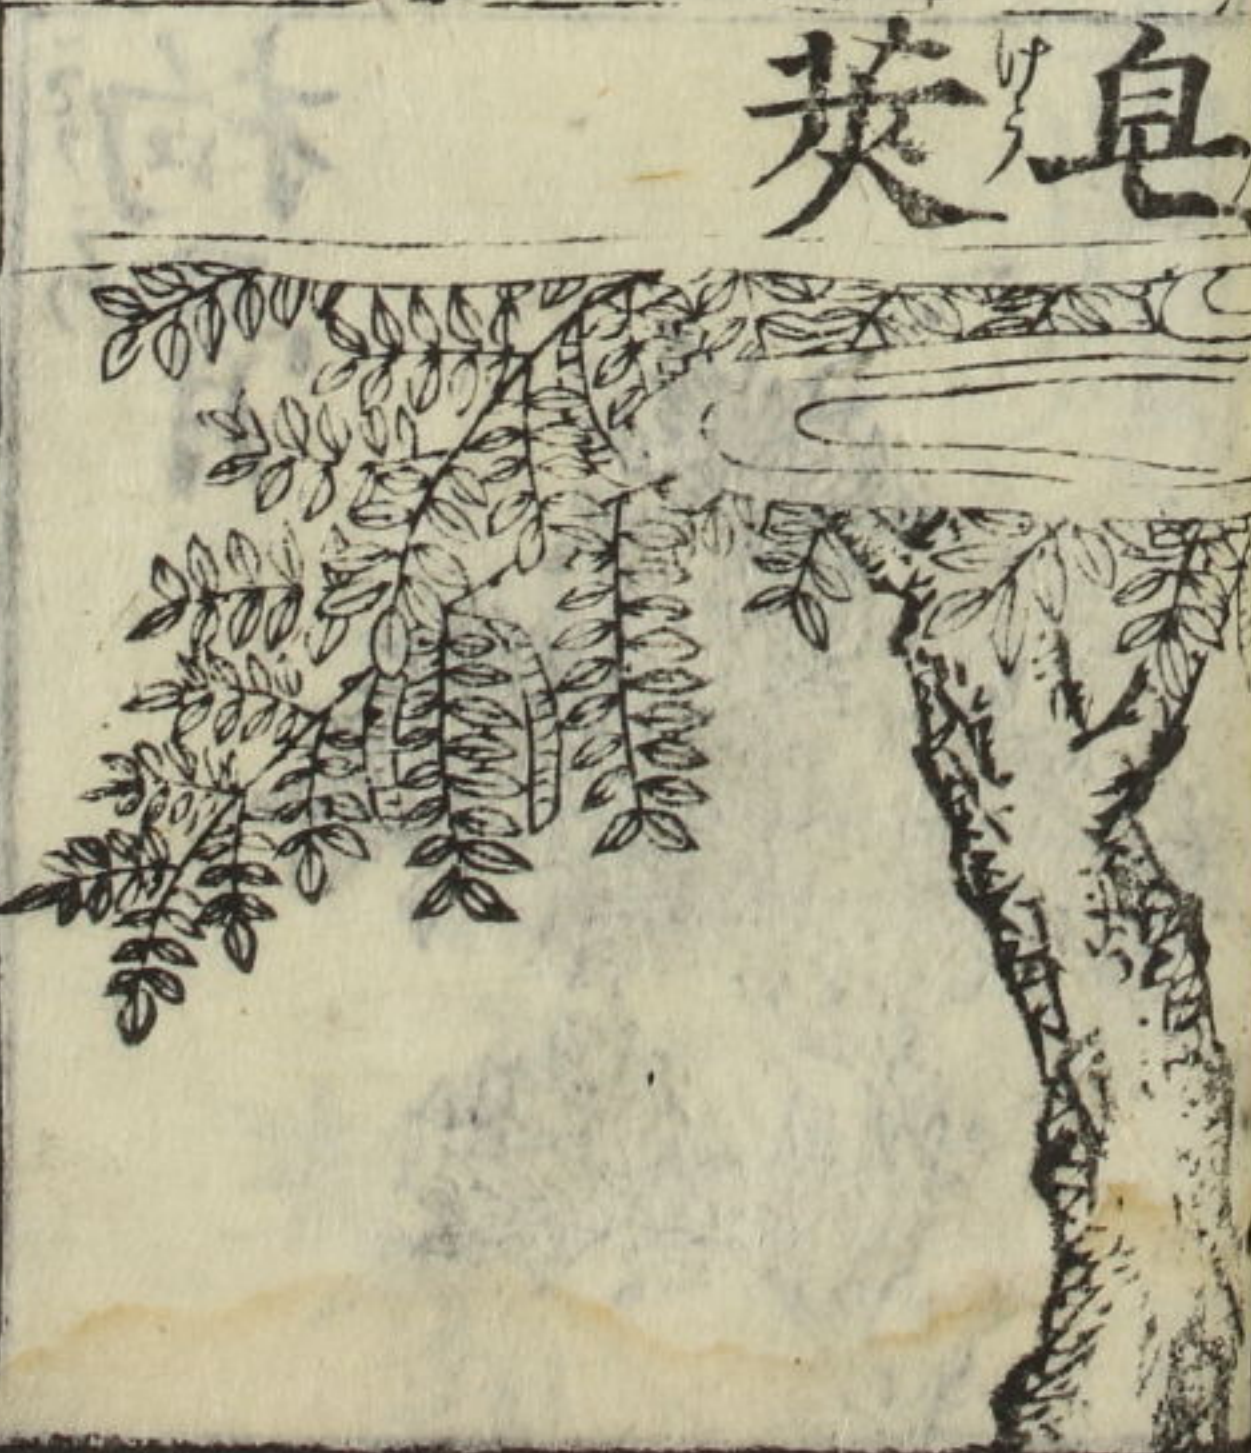 皂莢
けう